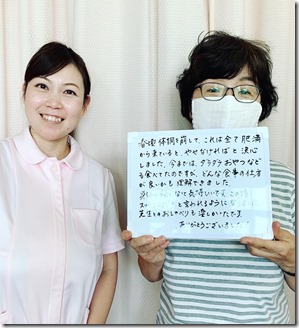 今迄体調を崩して、これは全て肥満
から来ていると、やせなければと決心
しました。今までは、ダラダラおやつなど
を食べてたのですが、どんな食事の仕方
が良いかも理解できました。
なって気持
と言われるように
先生とのおしゃべりも楽しかったです
ありがとうございました。